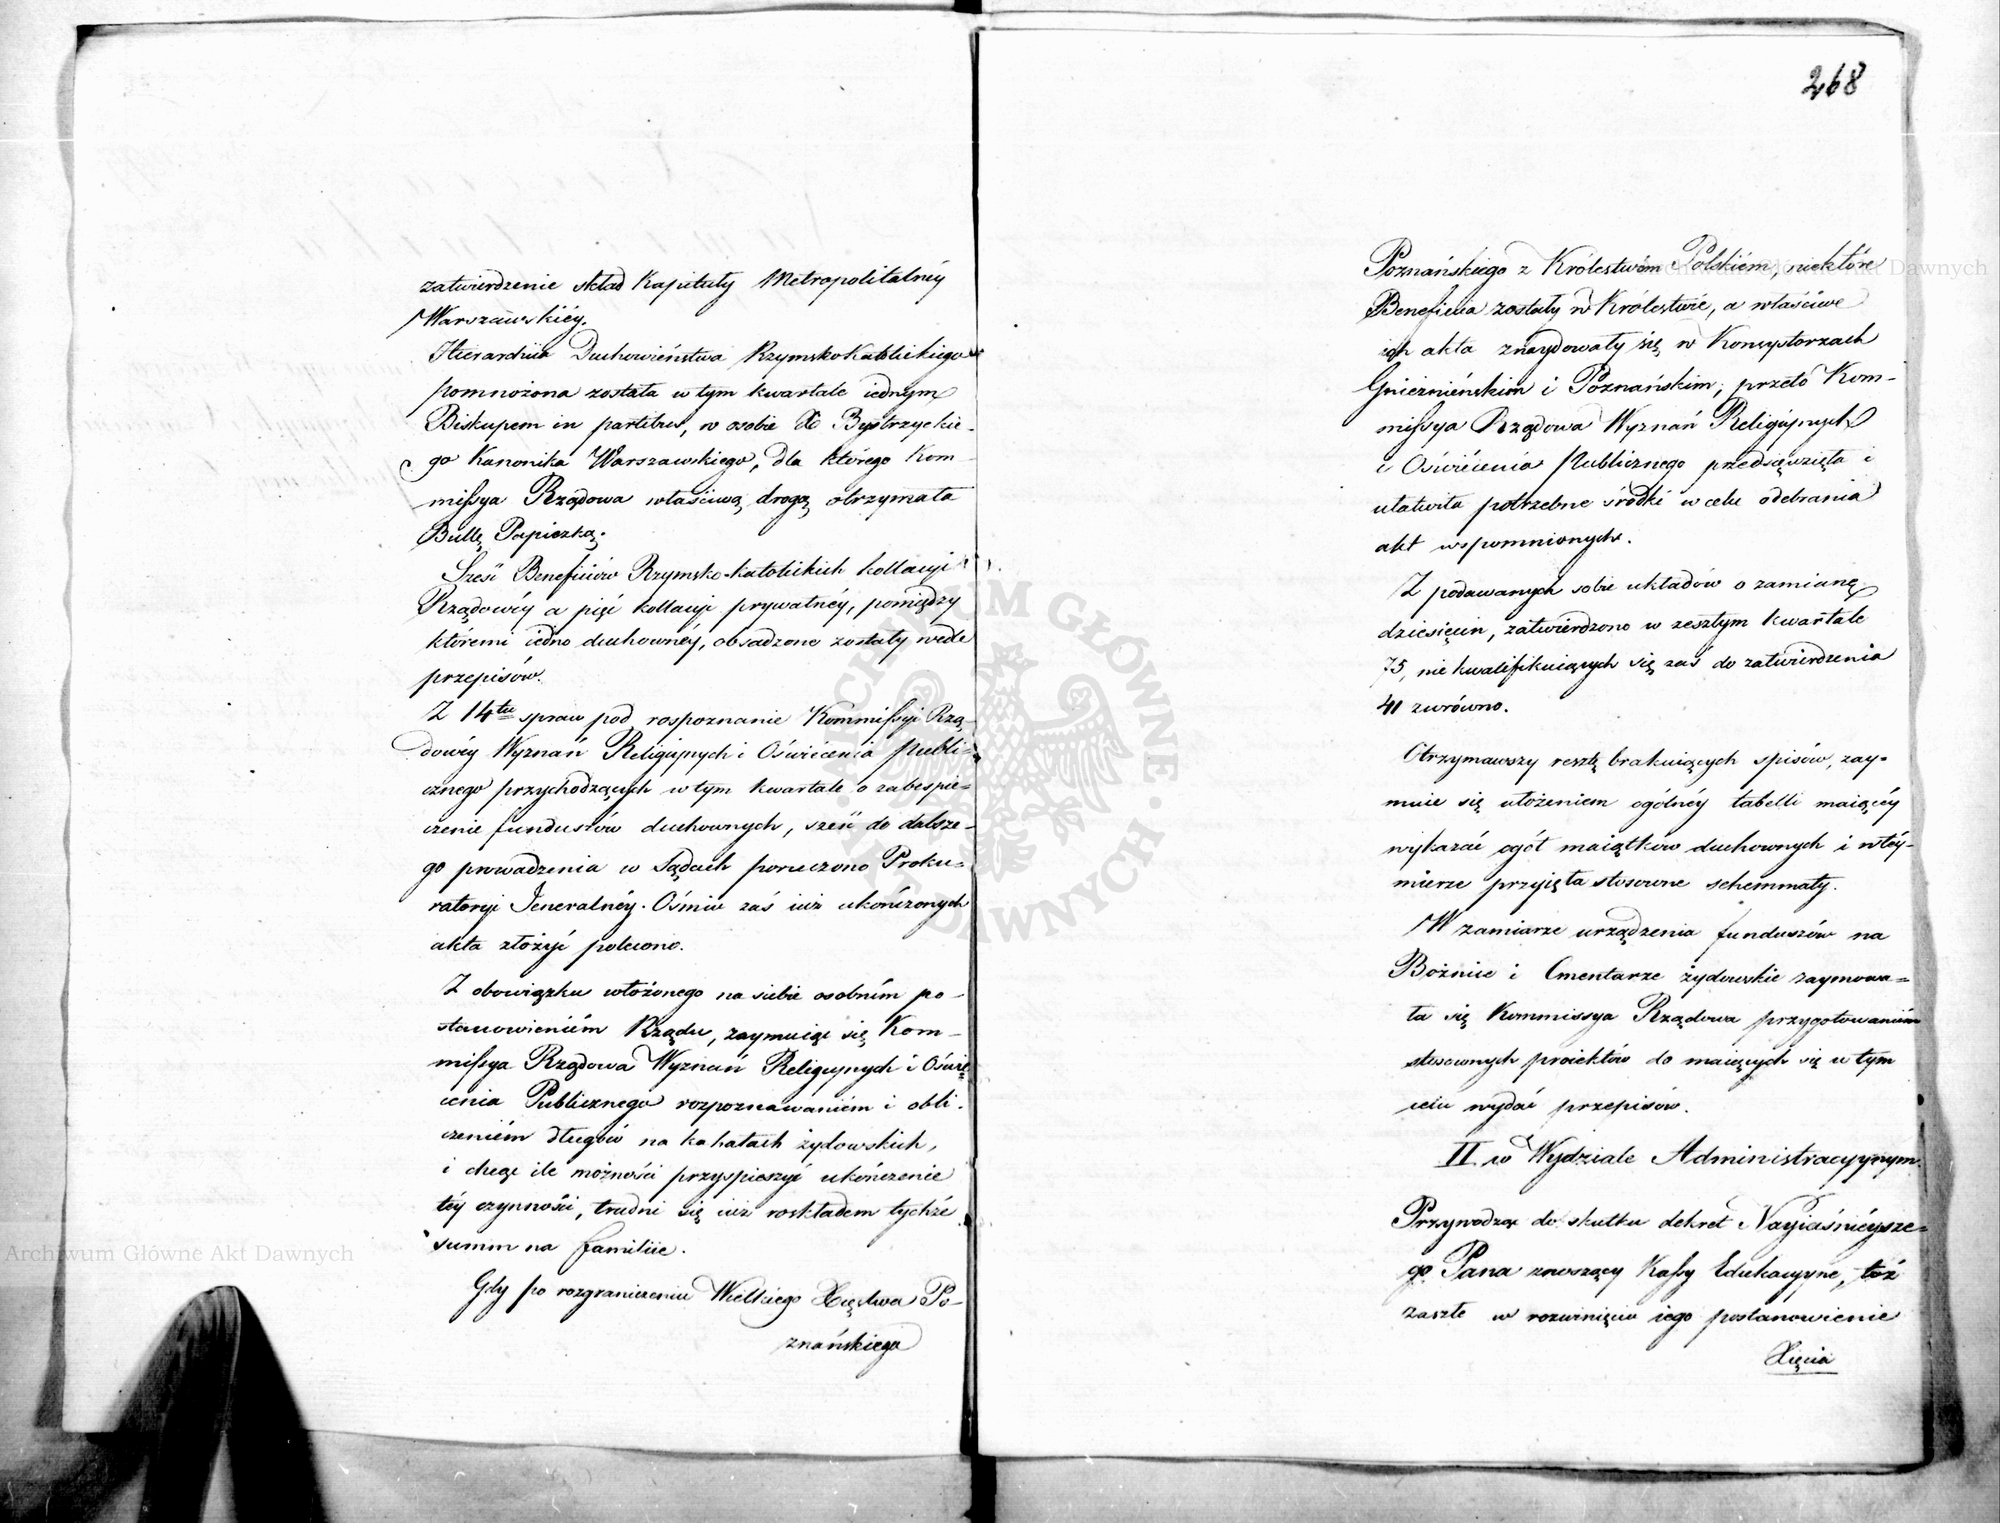 zatwierdzenie skład Kapituły Metropolitalnéy
Warszawskiéy.
Hierarchiia Duchowieństwa Rzymsko Katolickiego
pomnożona została w tym kwartale iednym
Biskupem in partibus, w osobie X Bystrzyckie-
go Kanonika Warszawskiego, dla którego Kom-
missya Rządowa właściwą drogą otrzymała
Bullę Papiezką.
Sześć Beneficiów Rzymsko-katolickich kollacyi
Rządowéy a pięć kollacyi prywatnéy, pomiędzy
któremi iedno duchownéy, obsadzone zostały wedle
przepisów.
Z 14tu spraw pod rospoznanie Kommissyi Rzą-
dowéy Wyznań Religiynych i Oświecenia Publi-
cznego przychodzących w tym kwartale o zabespie-
czenie funduszów duchownych, sześć do dalsze-
go prowadzenia w Sądach poruczono Proku-
ratoryi Jeneralnéy. Ośmiu zaś iuż ukończonych
akta złożyć polecono.
Z obowiązku włożonego na siebie osobném po-
stanowieniém Rządu, zaymuiąc się Kom-
missya Rządowa Wyznań Religiynych i Oświe-
cenia Publicznego rozpoznawaniém i obli-
czeniém długów na kahałach żydowskich,
i chcąc ile możności przyspieszyć ukończenie
téy czynności, trudni się iuż roskładem tychże
summ na familiie.
Gdy po rozgraniczeniu Wielkiego Xięstwa Po-
znańskiego
268
Poznańskiego z Królestwém Polskiém, niektóre
Beneficia zostały w Królestwie, a właściwe
ich akta znaydowały się w Konsystorzach
Gnieźnieńskim i Poznańskim, przeto Kom-
missya Rządowa Wyznań Religiynych
i Oświecenia Publicznego przedsięwzięła i
ułatwiła potrzebne środki w celu odebrania
akt wspomnionych.
Z podawanych sobie układów o zamianę
dziesięcin, zatwierdzono w zeszłym kwartale
75, nie kwalifikuiących się zaś do zatwierdzenia
41 zwrócono.
Otrzymawszy resztę brakuiących spisów, zay-
muie się ułożeniem ogólnéy tabelli maiącéy
wykazać ogół maiątków duchownych i w téy-
mierze przyięła stosowne schemmaty.
W zamiarze urządzenia funduszów na
Bożnice i Cmentarze żydowskie zaymowa-
ła się Kommissya Rządowa przygotowaniém
stosownych proiektów do maiących się w tym
celu wydać przepisów.
II w Wydziale Administracyynym.
Przywodząc do skutku dekret Nayiaśnieysze-
go Pana znoszący Kassy Edukacyyne, toż
zaszłe w rozwinięciu iego postanowienie
Xięcia
Archiwum Główne Akt Dawnych
Archiwum Główne Akt Dawnych
ARCHIWUM GŁÓWNE · AKT DAWNYCH ·